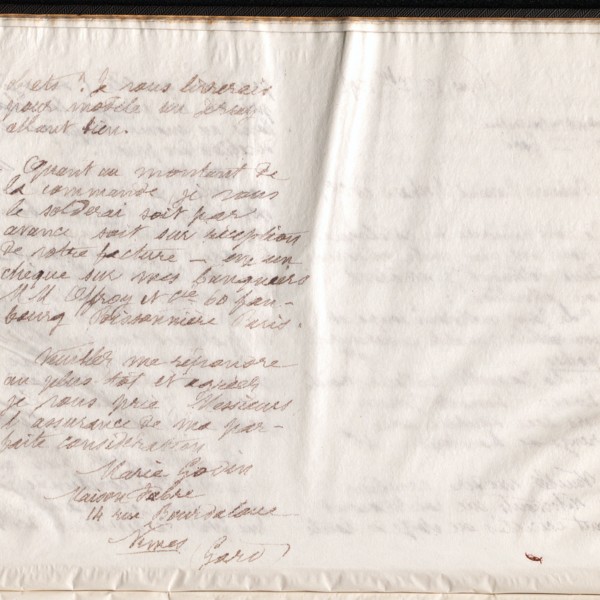 je vous livrerais
pour modèle un
allant bien.
Quant au montant de
la commande je vous
le solderai soit par
avance soit sur réception
de votre facture — en un
chèque sur mes banquiers
MM Offroy et Cie 60 fau-
bourg Poissonnière Paris.
Veuillez me répondre
au plus tôt et agréer
je vous prie Messieurs
l'assurance de ma par-
faite considération
Marie Godin
Maison Fabre
14 rue Bourdaloue
Nîmes
Gard